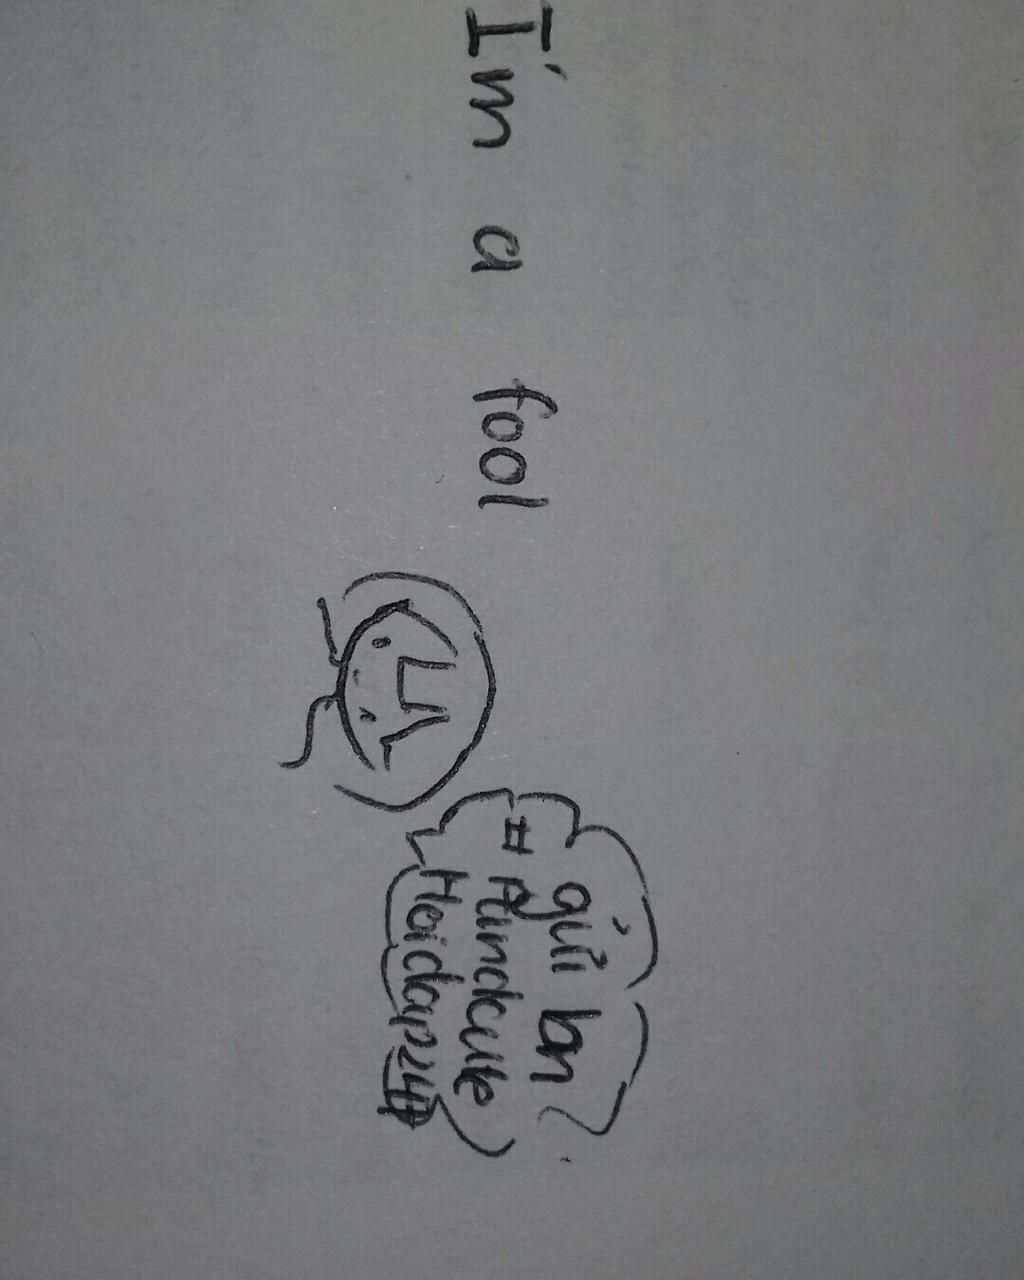 I'm a fool
gửi bn
# Fundcute
Hoidap247